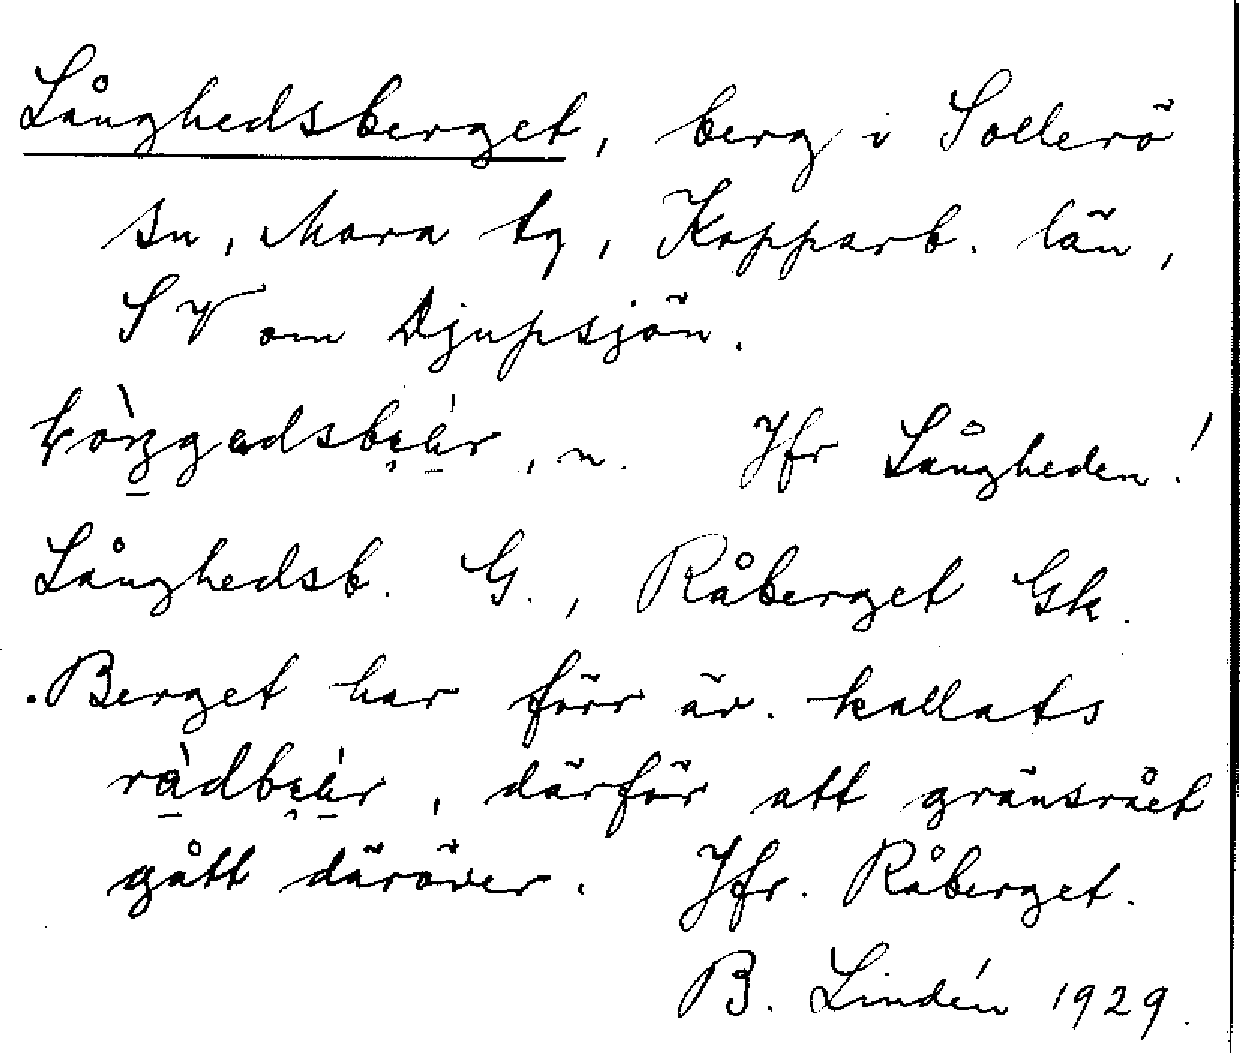 Långhedsberget, berg i Sollerö
sn, Mora tg, Kopparb. län,
SV om Djupsjön.
, n. Jfr Långheden!
Långhedsb. G., Råberget Gk.
Berget har förr äv. kallats
, därför att gränsrået
gått däröver. Jfr. Råberget.
B. Lindén 1929.